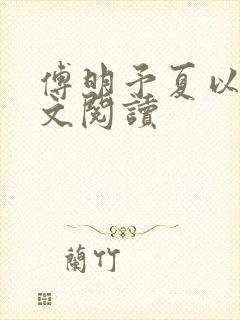 傅明予夏以
文閱讀
蘭竹